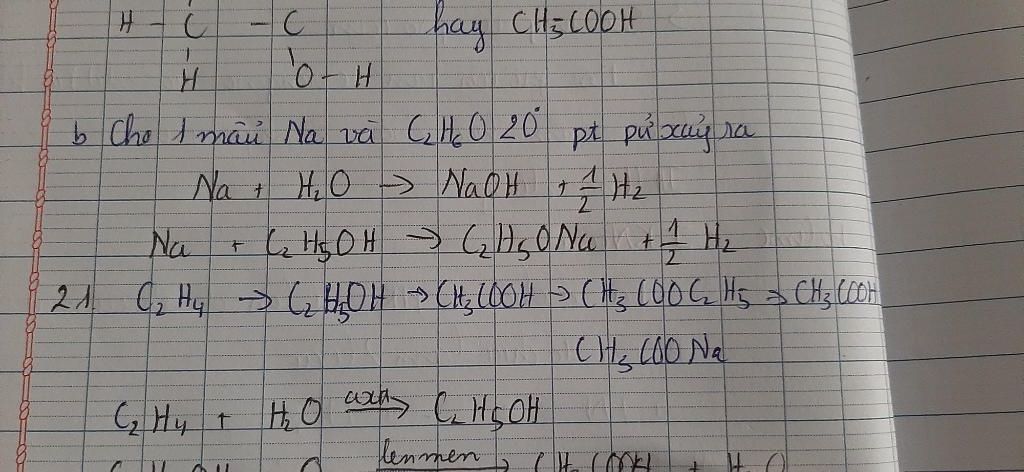 H - C - C hay CH3COOH
H O - H
b Cho 1 mẩu Na và C2H6O 20° pt pứ xảy ra
Na + H2O → NaOH + 1/2 H2
Na + C2H5OH → C2H5ONa + 1/2 H2
21 C2H4 → C2H5OH → CH3COOH → CH3COOC2H5 → CH3COOH
CH3COONa
C2H4 + H2O axit→ C2H5OH
lenmen